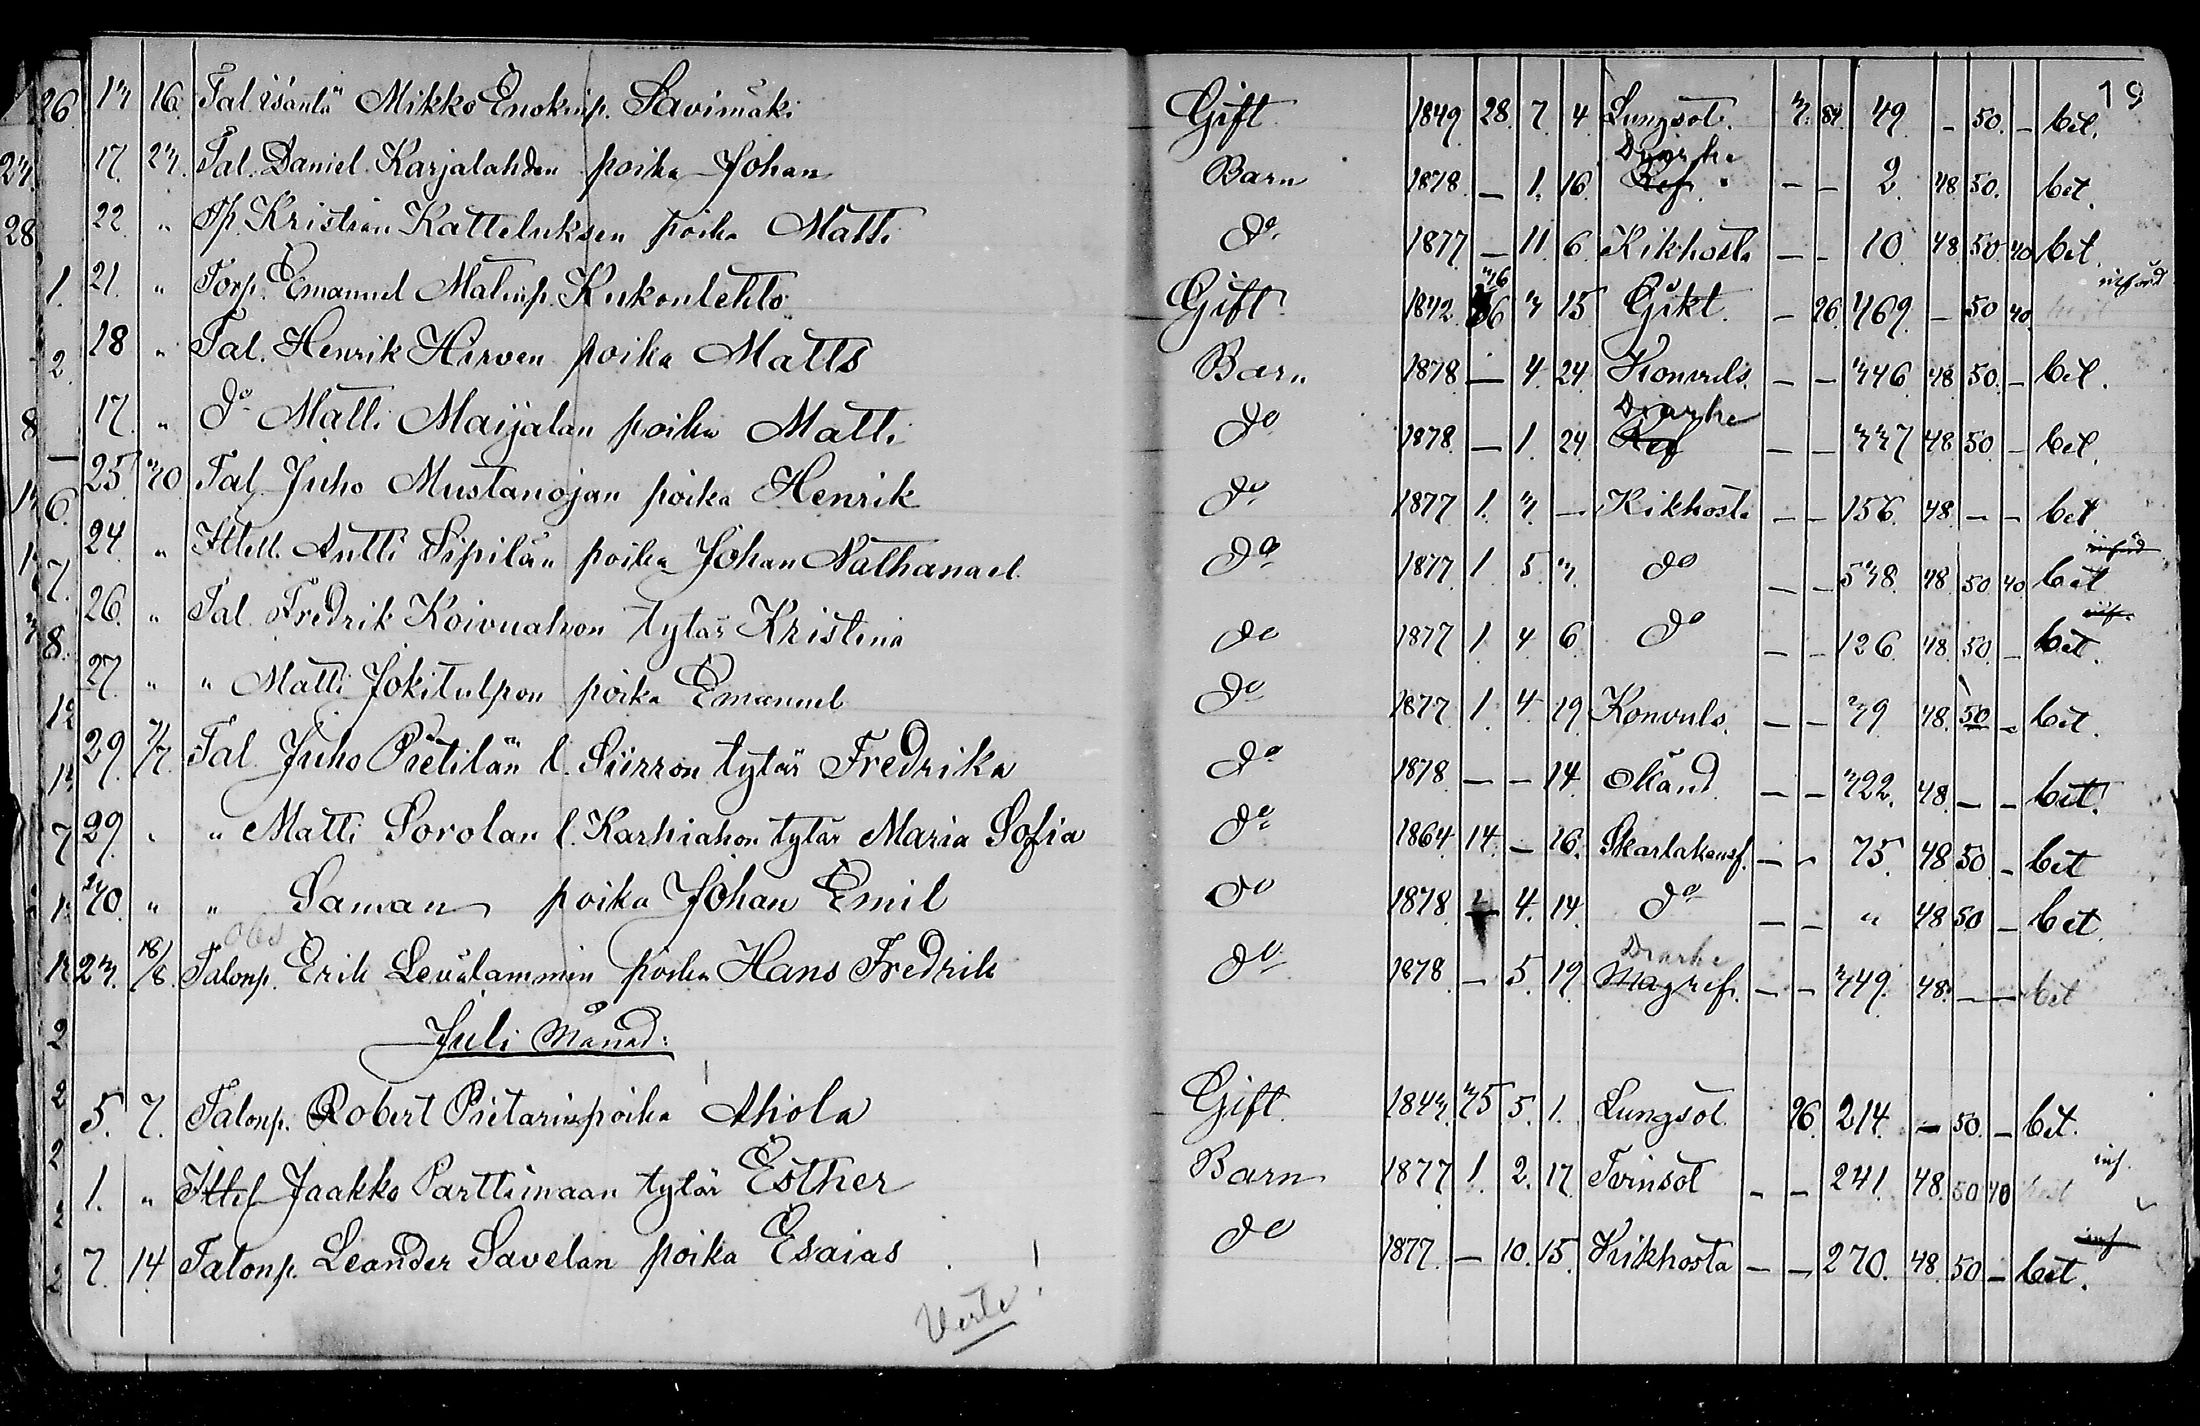 19
13 16. Tal. isäntä Mikko Enokinp. Savimäki Gift 1849 28. 7. 4 Lungsot. 3. 84. 49 – 50. – bet.
17. 23. Tal. Daniel Karjalahden poika Johan Barn 1878. – 1. 16 Ref. Diarhe – – 2. 48 50. bet.
22. " Tp. Kristian Katteluksen poika Matti do 1877 – 11 6 Kikhosta – – 10. 48. 50 40 bet.
21. " Torp. Emanuel Matinp. Kukonlehto Gift. 1842 36 3 15 Gikt. – 26. 369. – 50 40 införd
18 " Tal. Henrik Hirven poika Matts Barn 1878 – 4. 24 Konvuls. – – 346 48. 50. – bet.
17. " do Matti Maijalan poika Matti do 1878. – 1. 24. Ref Diarhe – – 337 48. 50. – bet.
25. 30. Tal. Juho Mustanojan poika Henrik do 1877 1. 3. – Kikhosta – – 156. 48. – – bet
24 " Ittell. Antti Sipilän poika Johan Nathanael do 1877 1 5. 3. do – – 538. 48. 50. 40. bet införd
26. " Tal. Fredrik Koivuahon tytär Kristina do 1877 1. 4 6. do – – 126. 48. 50. – bet. inf.
27. " " Matti Jokitulpon poika Emanuel do 1877. 1. 4. 19. Konvuls. – – 39 48. 50. – bet.
29. 7/7. Tal. Juho Pietilän l. Siirron tytär Fredrika do 1878 – – 14. Okänd – – 322. 48. – – bet.
29. " " Matti Sorolan l. Karhiahon tytär Maria Sofia do 1864. 14. – 16. Skarlakansf. – – 75. 48 50 – bet
30. " " Saman poika Johan Emil do 1878 – 4. 14. do – – " 48 50 – bet.
obs
23. 18/8. Talonp. Erik Levälammin poika Hans Fredrik do 1878 – 5. 19. Magref. Diarhe – – 349. 48. – – bet
Juli Månad:
5. 7. Talonp. Robert Pietarinpoika Ahiola Gift. 1843. 35 5. 1. Lungsot 26. 214. – 50. – bet.
1. " Ittel Jaakko Parttimaan tytär Esther Barn 1877 1. 2. 17. Tvinsot – – 241. 48. 50 40 inf.
7. 14. Talonp. Leander Savelan poika Esaias do 1877. – 10. 15. Kikhosta – – 270. 48. 50 – bet. inf
Verte!